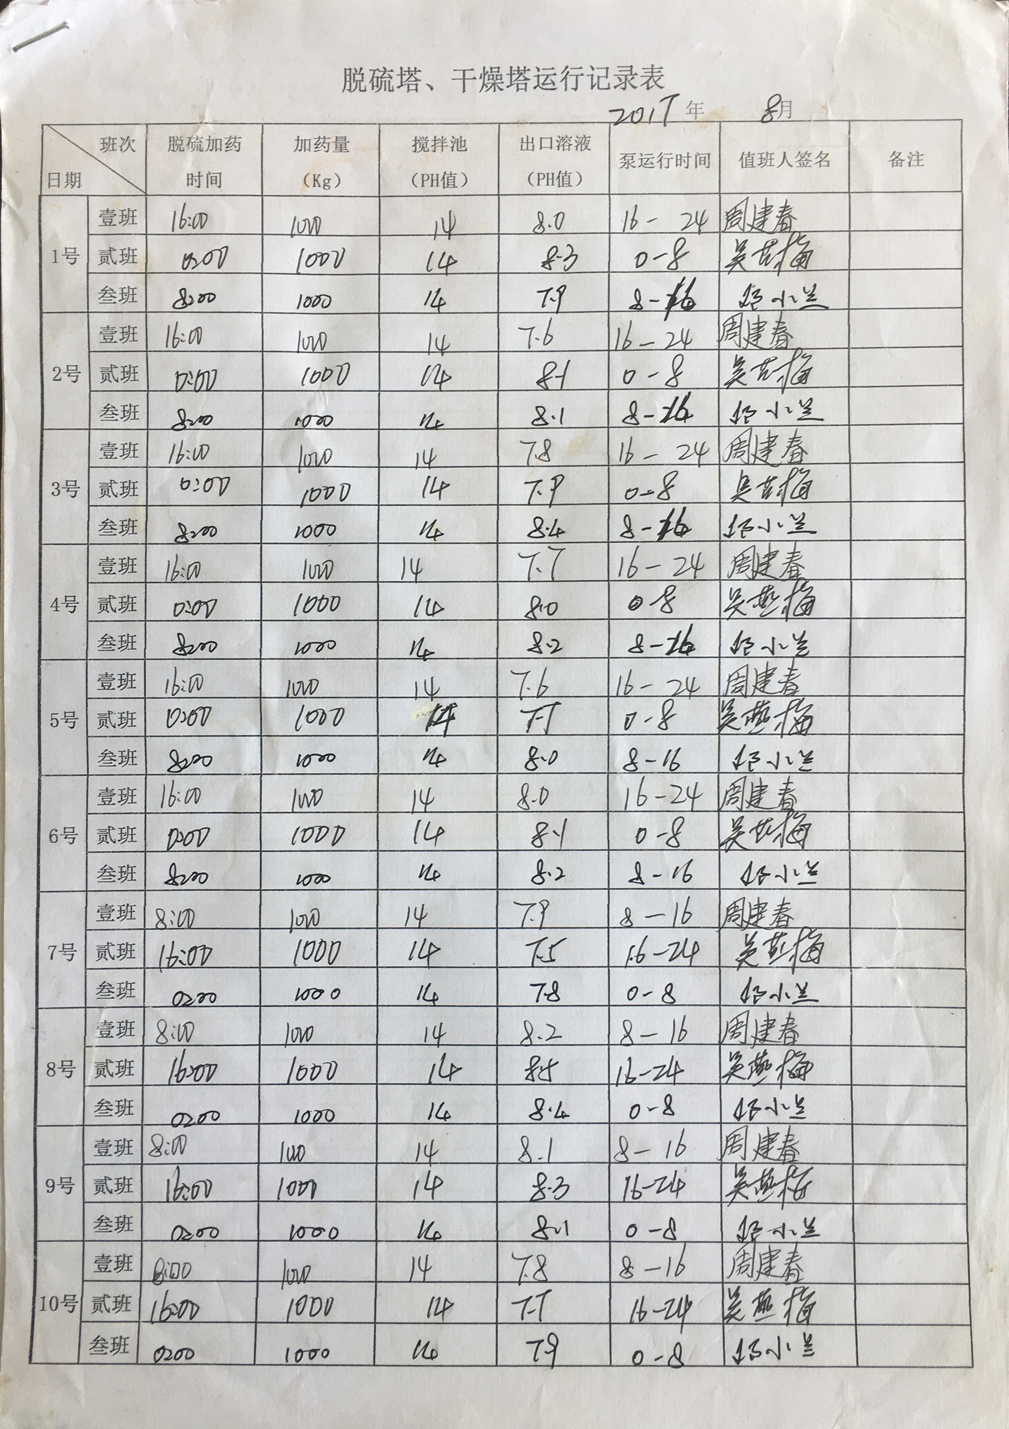 脱硫塔、干燥塔运行记录表
2017年 8月
班次 日期 脱硫加药时间 加药量（Kg） 搅拌池（PH值） 出口溶液（PH值） 泵运行时间 值班人签名 备注
1号 壹班 16:00 1000 14 8.0 16-24 周建春
贰班 0:00 1000 14 8.3 0-8 吴燕梅
叁班 8:00 1000 14 7.9 8-16 小兰
2号 壹班 16:00 1000 14 7.6 16-24 周建春
贰班 0:00 1000 14 8.1 0-8 吴燕梅
叁班 8:00 1000 14 8.1 8-16 小兰
3号 壹班 16:00 1000 14 7.8 16-24 周建春
贰班 0:00 1000 14 7.9 0-8 吴燕梅
叁班 8:00 1000 14 8.4 8-16 小兰
4号 壹班 16:00 1000 14 7.7 16-24 周建春
贰班 0:00 1000 14 8.0 0-8 吴燕梅
叁班 8:00 1000 14 8.2 8-16 小兰
5号 壹班 16:00 1000 14 7.6 16-24 周建春
贰班 0:00 1000 14 0-8 吴燕梅
叁班 8:00 1000 14 8.0 8-16 小兰
6号 壹班 16:00 1000 14 8.0 16-24 周建春
贰班 0:00 1000 14 8.1 0-8 吴燕梅
叁班 8:00 1000 14 8.2 8-16 小兰
7号 壹班 8:00 1000 14 7.9 8-16 周建春
贰班 16:00 1000 14 7.5 16-24 吴燕梅
叁班 0:00 1000 14 7.8 0-8 小兰
8号 壹班 8:00 1000 14 8.2 8-16 周建春
贰班 16:00 1000 14 8.5 16-24 吴燕梅
叁班 0:00 1000 14 8.4 0-8 小兰
9号 壹班 8:00 1000 14 8.1 8-16 周建春
贰班 16:00 1000 14 8.3 16-24 吴燕梅
叁班 0:00 1000 14 8.1 0-8 小兰
10号 壹班 8:00 1000 14 7.8 8-16 周建春
贰班 16:00 1000 14 16-24 吴燕梅
叁班 0:00 1000 14 7.9 0-8 小兰